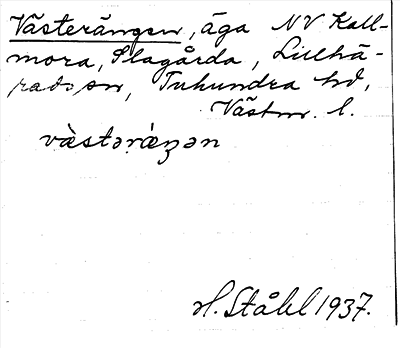 Västerängen, äga NV Kall-
mora, Slagårda, Lillhä-
rads sn, Tuhundra hd,
Västm. l.
vàstəráŋən
H. Ståhl 1937.